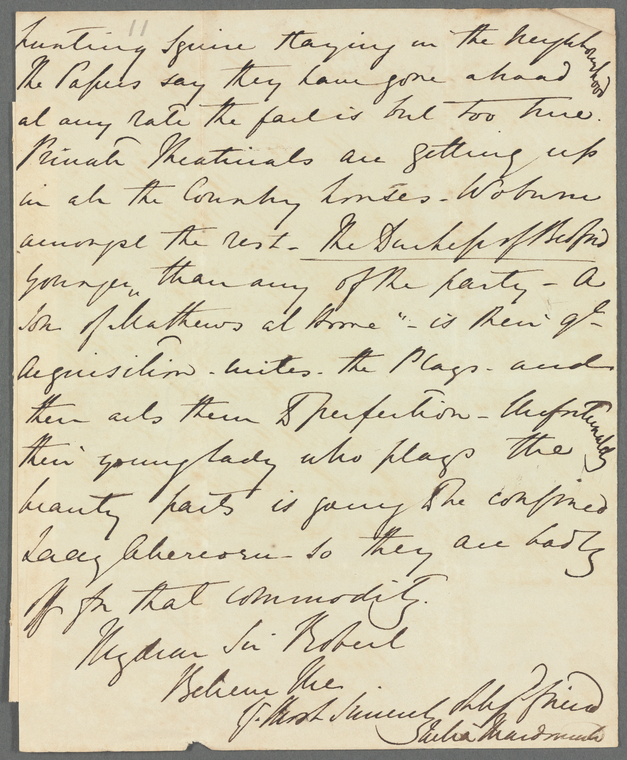 11
hunting Squire staying in the Neighbourhood
The Papers say they have gone ahead
at any rate the fact is but too true.
Private Theatricals are getting up
in all the Country houses - Woburn
amongst the rest - The Duchess of Bedford
younger than any of the party - A
Son of Mathews at home" - is their gt
Acquisition - writes - the Plays - and
then acts them to perfection - Unfortunately
their young lady who plays the
beauty parts is going to be confined
Lady Abercorn - so they are badly
off for that commodity.
My dear Sir Robert
Believe Me
Yr Most Sincerely friend